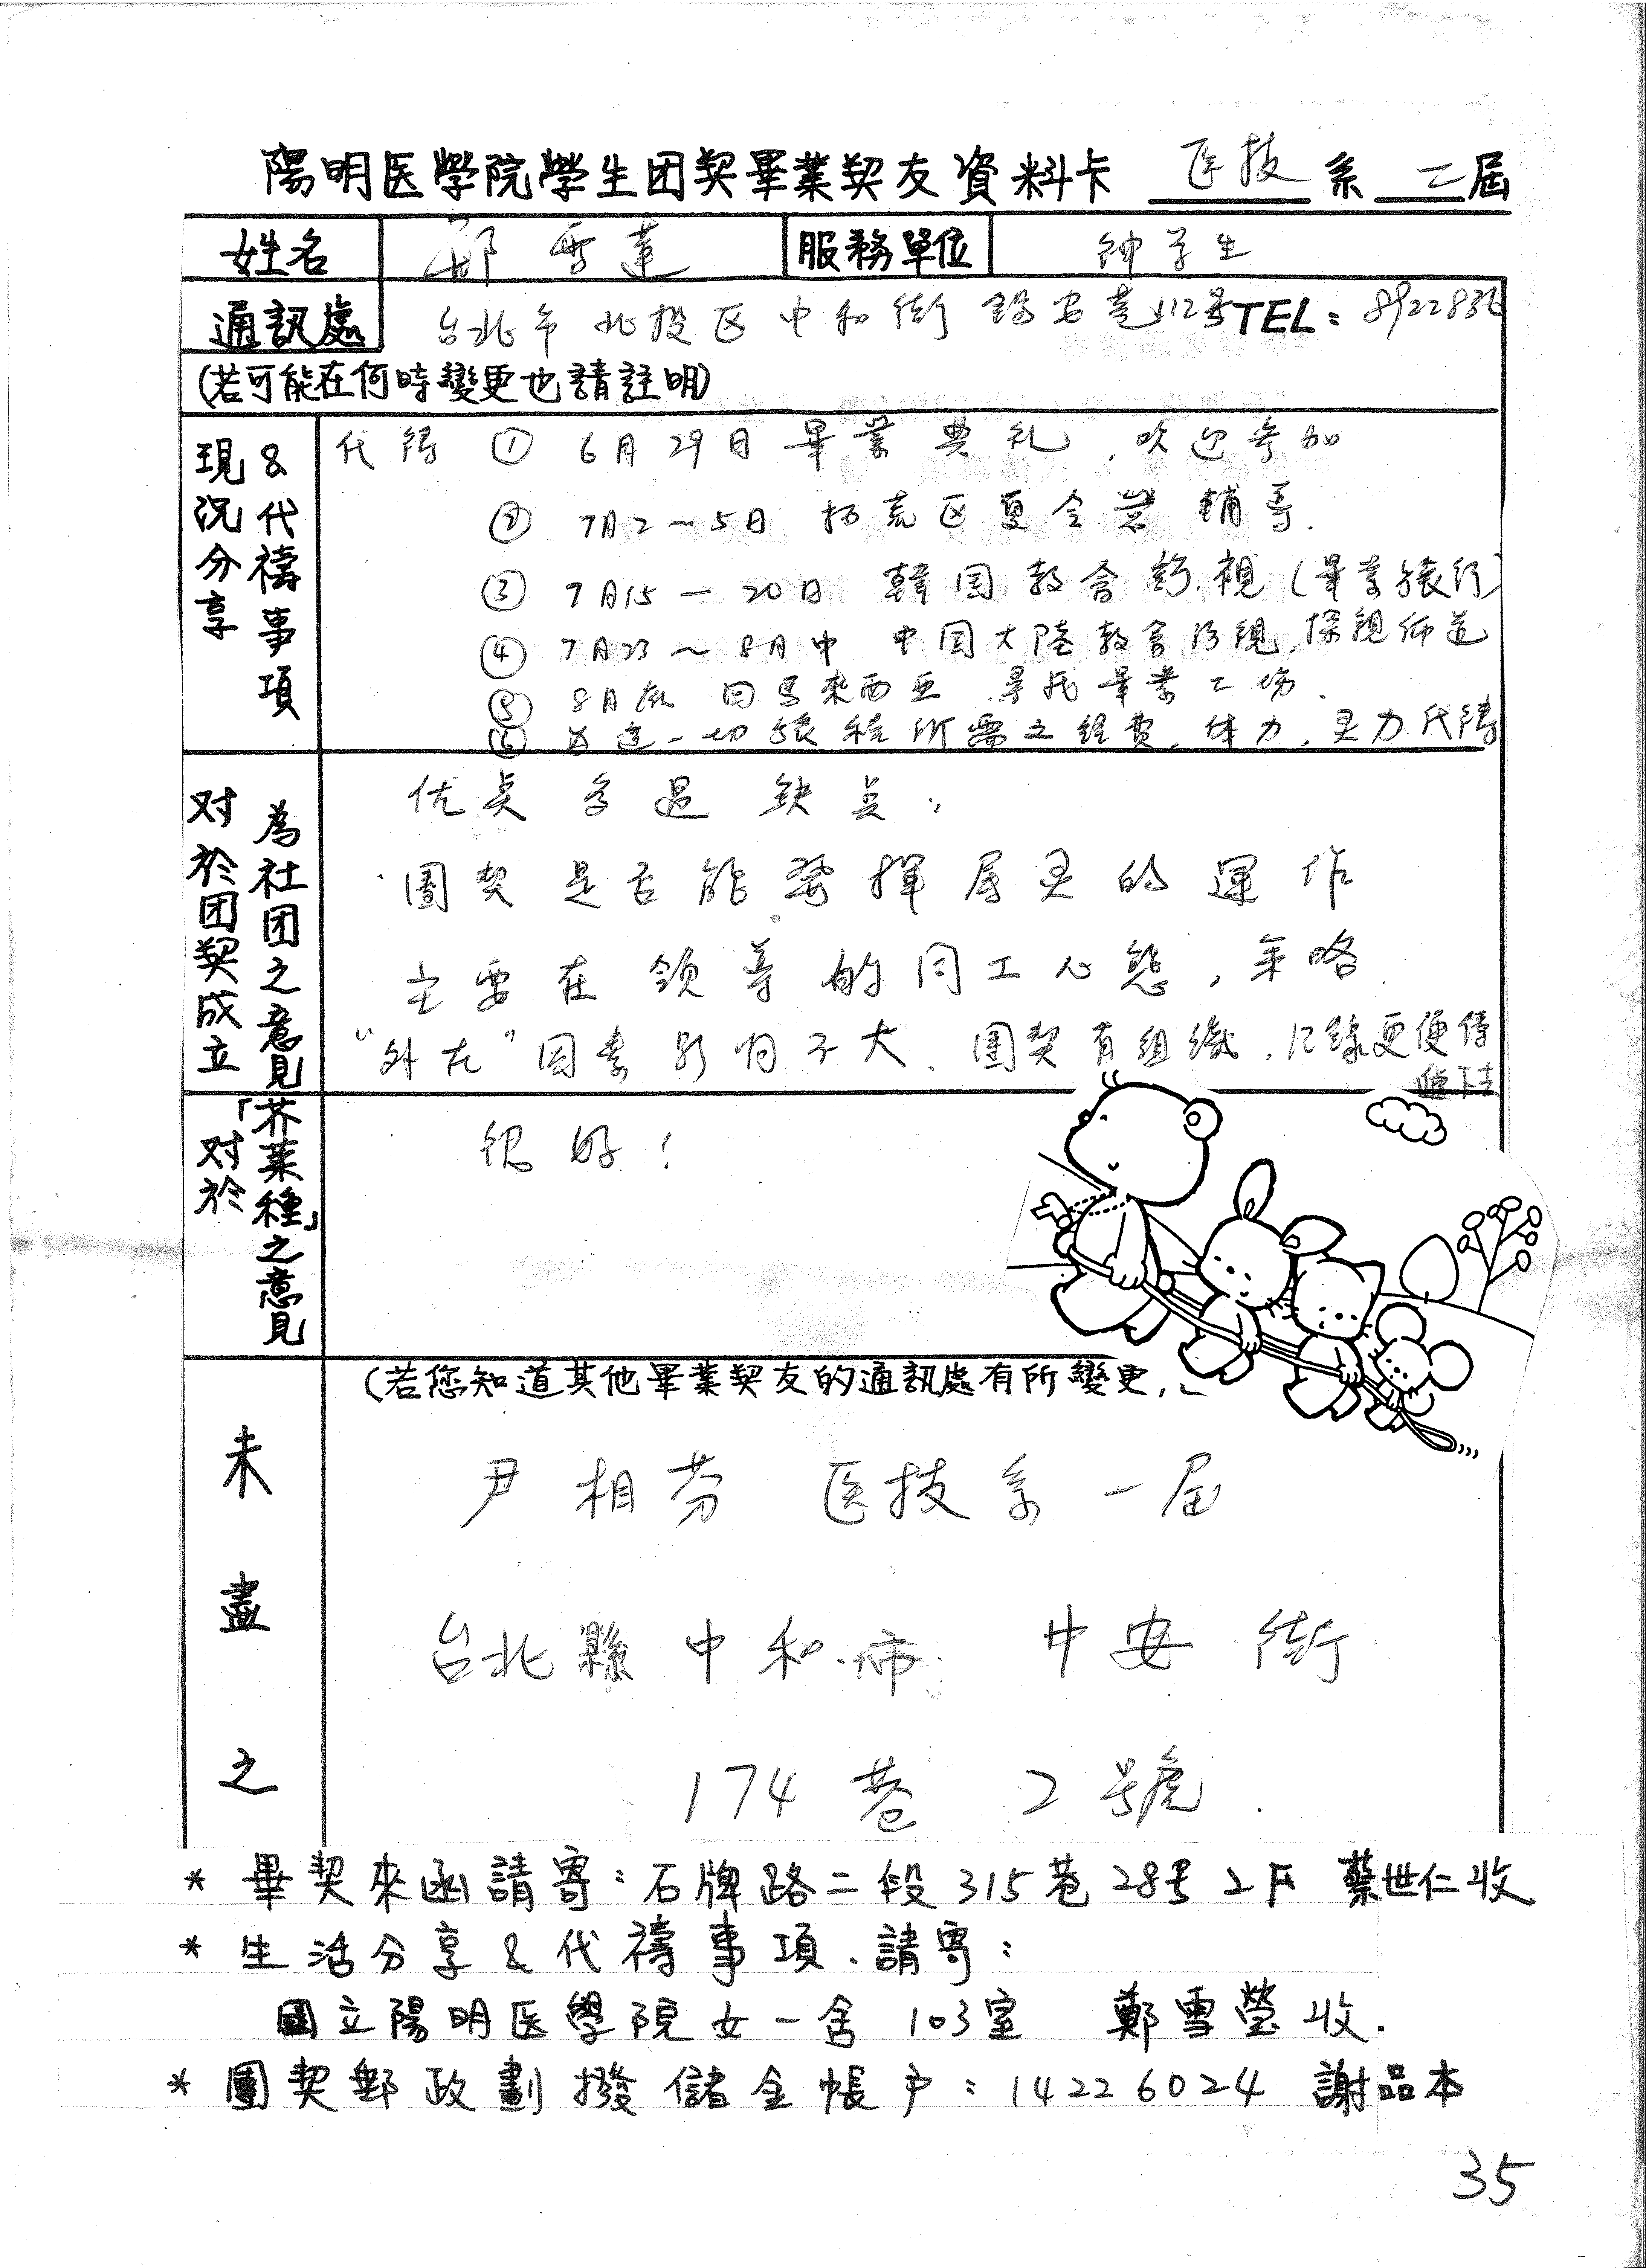 陽明医學院學生団契畢業契友資料卡 医技 系 二 屆
姓名 雪蓮 服務單位 神学生
通訊處 台北市北投区中和街 112号 TEL: 8922836
(若可能在何時變更也請註明)
現況分享 & 代禱事項
代禱 ① 6月29日畢業典礼,欢迎参加
② 7月2~5日 区夏令营輔导.
③ 7月15-20日 韓国教会訪視(畢業旅行)
④ 7月23~8月中 中国大陸教会訪視,探親佈道
⑤ 8月底 回马来西亚 尋找畢業工場.
⑥ 为這一切旅程所需之経費,体力,灵力代禱
对於団契成立為社団之意見
优点多過缺点:
團契是否能發揮属灵的運作
主要在領导的同工心態,策略.
"外在"因素影响不大.團契有組織,记錄更便傳
下去
对於「芥菜種」之意見
很好!
(若您知道其他畢業契友的通訊處有所變更,
未盡之
尹相芬 医技系一届
台北縣中和市 中安街
174巷 2號.
* 畢契來函請寄:石牌路二段315巷28号2F 蔡世仁收
* 生活分享&代禱事項.請寄:
國立陽明医學院女一舍 103室 鄭雪瑩收.
* 團契郵政劃撥儲金帳户:14226024 謝品本
35